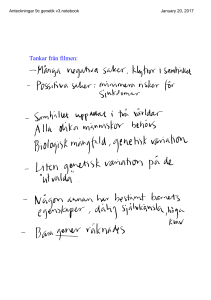 Anteckningar 9c genetik v3.notebook
January 20, 2017
Tankar från filmen:
- Många negativa saker, klyftor i samhället
- Possitiva saker: minimera risker för
sjukdomar.
- Samhället uppdelat i två världar
Alla olika människor behövs
Biologisk mångfald, genetisk variation
- Liten genetisk variation på de
"utvalda"
- Någon annan har bestämt barnets
egenskaper, dålig självkänsla, höga
krav
- Bara gener räknades